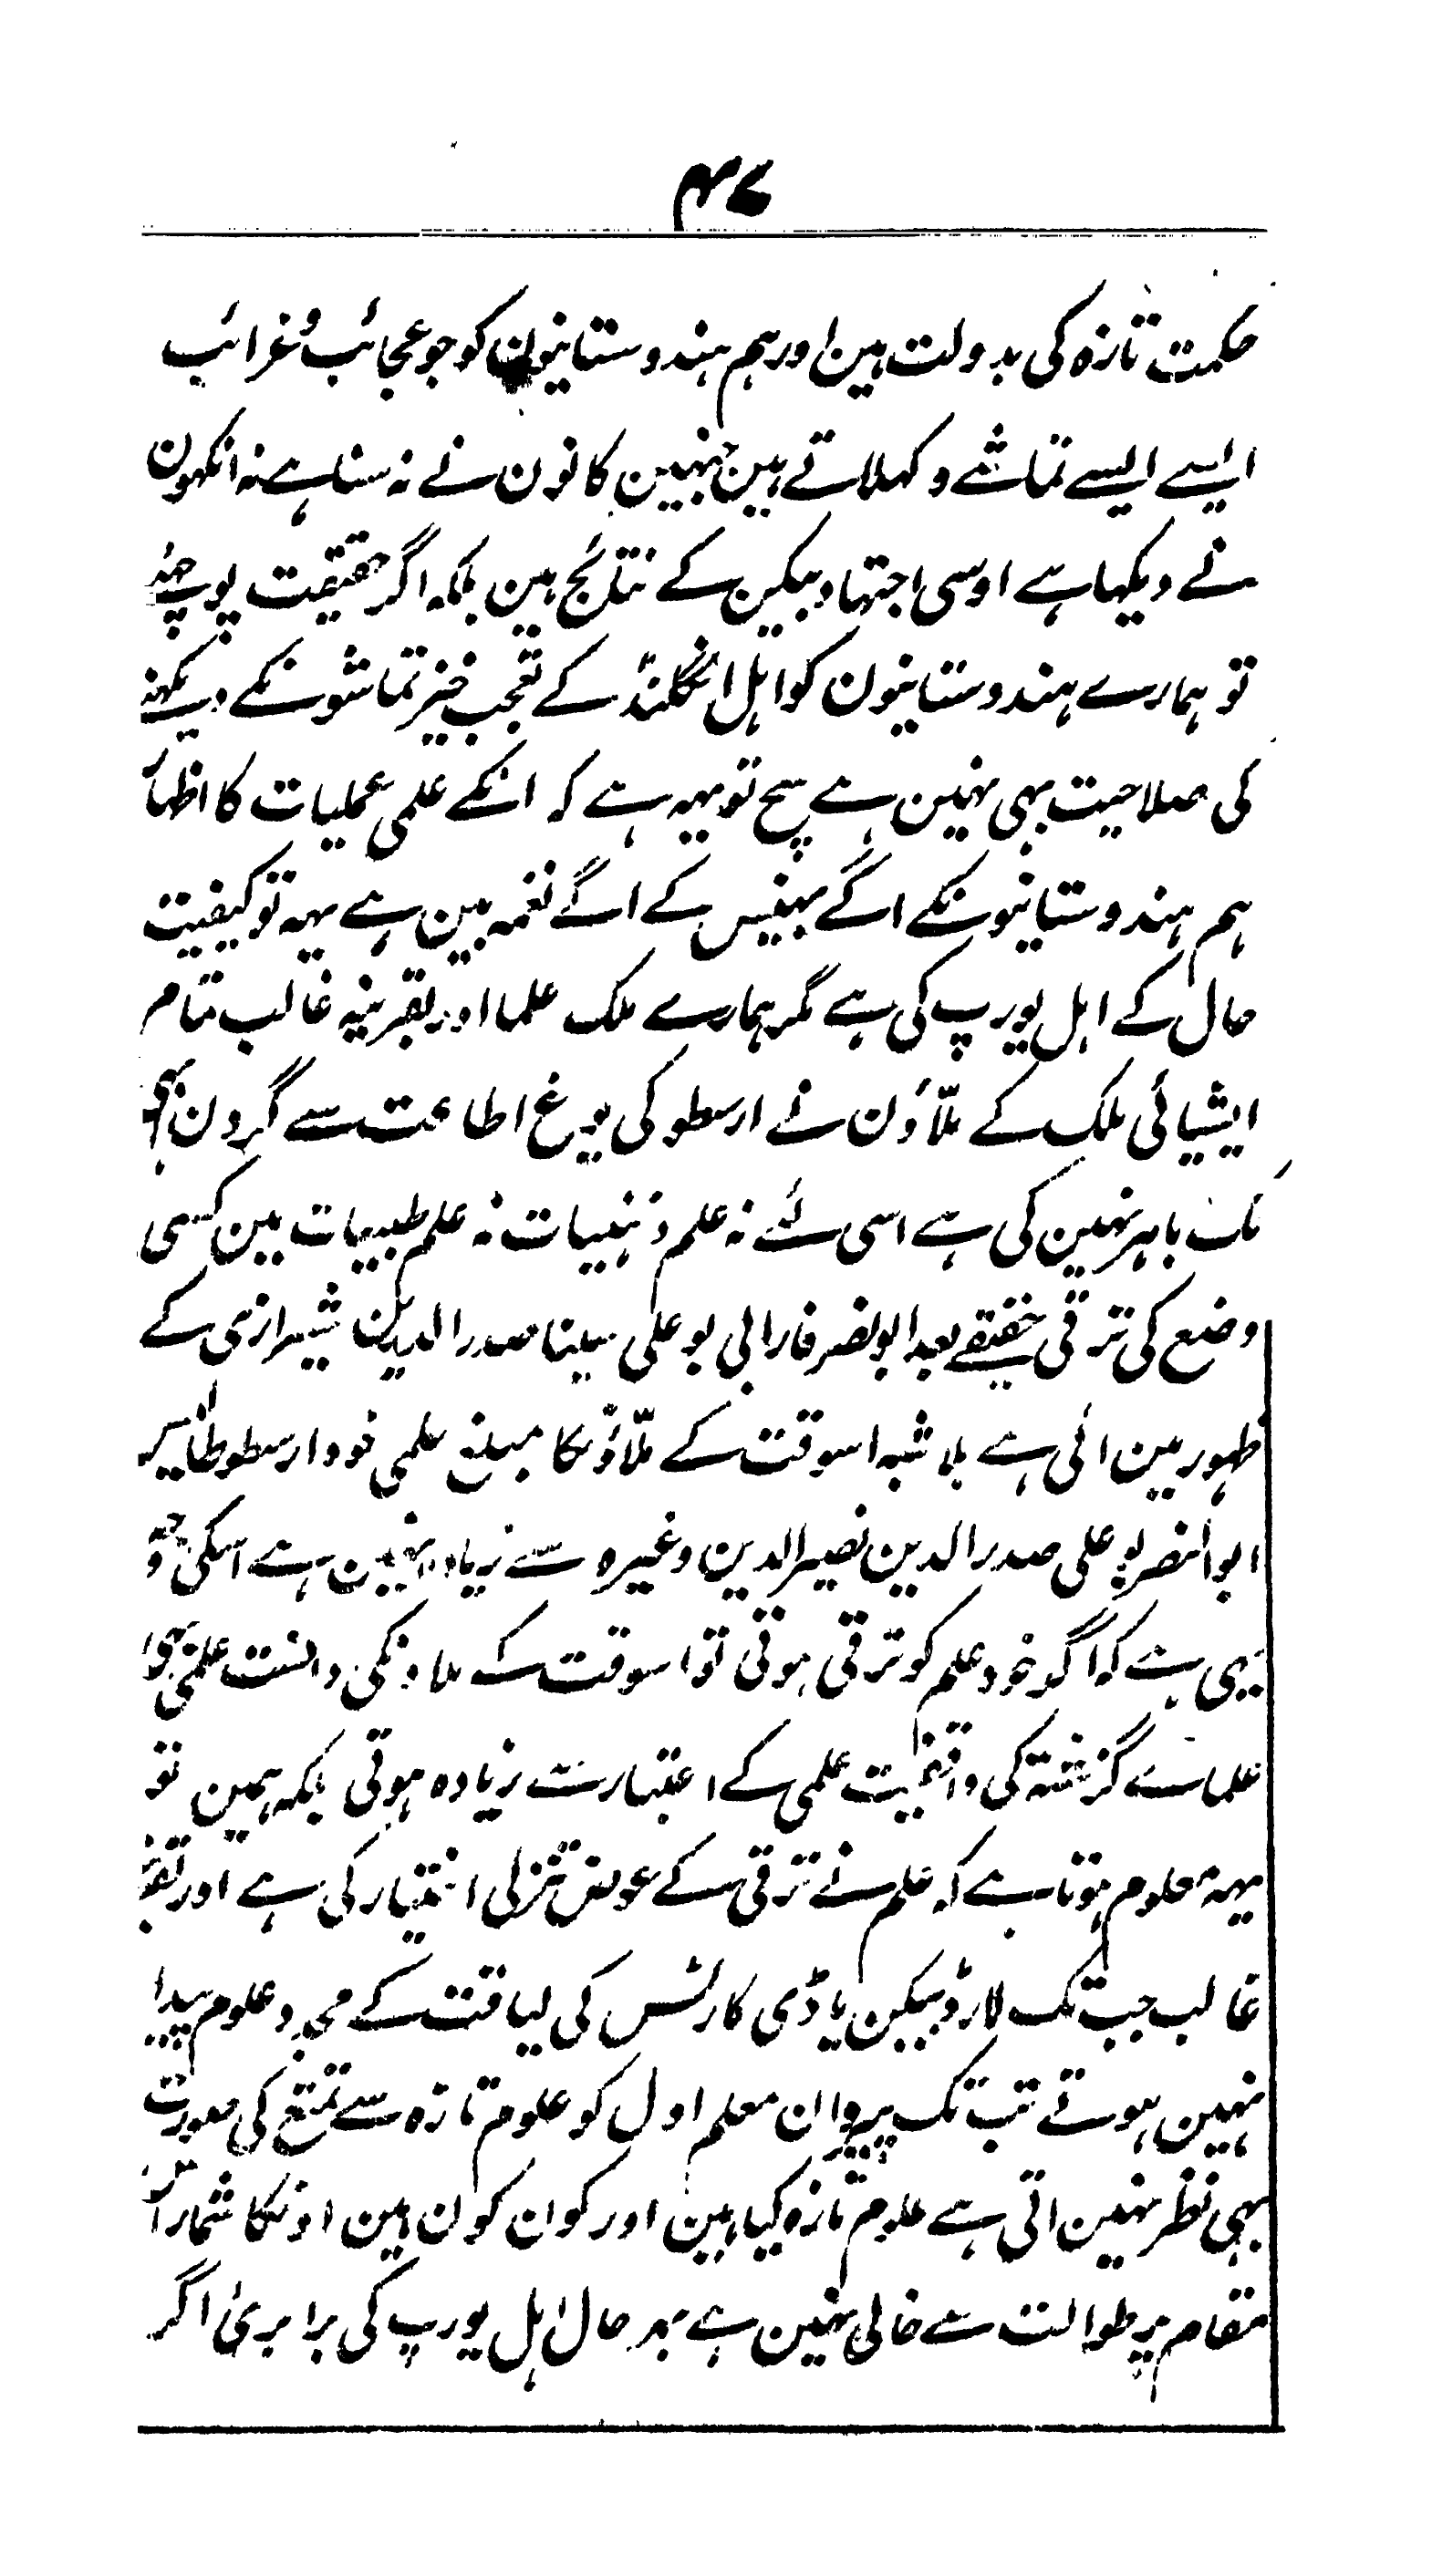 ۴۷
حکمت تازہ کی بدولت ہین اور ہم ہندوستانیون کو جو عجائب و غرائب
ایسے ایسے تماشے دکہلاتے ہین جنہین کانون نے نہ سنا ہے نہ انکہون
نے دیکہا ہے اوسی اجتہاد بیکن کے نتائج ہین بلکہ اگر حقیقت پوچہئے
تو ہمارے ہندوستانیون کو اہل انگلنڈ کے تعجب خیز تماشونکے دیکہنے
کی صلاحیت بہی نہین ہے سچ تو یہہ ہے کہ انکے علمی عملیات کا اظہار
ہم ہندوستانیونکے اگے بہینس کے اگے نغمہ بین ہے یہہ تو کیفیت
حال کے اہل یورپ کی ہے مگر ہمارے ملک علما اور بقرینہ غالب تمام
ایشیائی ملک کے ملّاؤن نے ارسطو کی یوغ اطاعت سے گردن ابہی
تک باہر نہین کی ہے اسی لئے نہ علم ذہنیات نہ علم طبیعات مین کسی
وضع کی ترقی حقیقے بعد ابو نصر فارابی بو علی سینا صدر الدین شیرازی کے
ظہور مین ائی ہے بلا شبہ اسوقت کے ملّاؤنکا مبلغ علمی خود ارسطوطالیس
ابوالنصر بو علی صدر الدین نصیر الدین وغیرہ سے زیادہ نہین ہے اسکی وجہ
یہی ہے کہ اگر خود علم کو ترقی ہوتی تو اسوقت کے ملاونکی دانست علمی بہی
علماے گزشتہ کی واقفیت علمی کے اعتبار سے زیادہ ہوتی بلکہ ہمین تو
یہہ معلوم ہوتا ہے کہ علم نے ترقی کے عوض تنزلی اختیار کی ہے اور بقرینہ
غالب جب تک لارڈ بیکن یا ڈی کارٹس کی لیاقت کے مجدد علوم پیدا
نہین ہوتے تب تک پیروان معلم اول کو علوم تازہ سے تمتع کی صورت
بہی نظر نہین اتی ہے علوم تازہ کیا ہین اور کون کون ہین اونکا شمار اس
مقام پر طوالت سے خالی نہین ہے بہر حال اہل یورپ کی برابری اگر